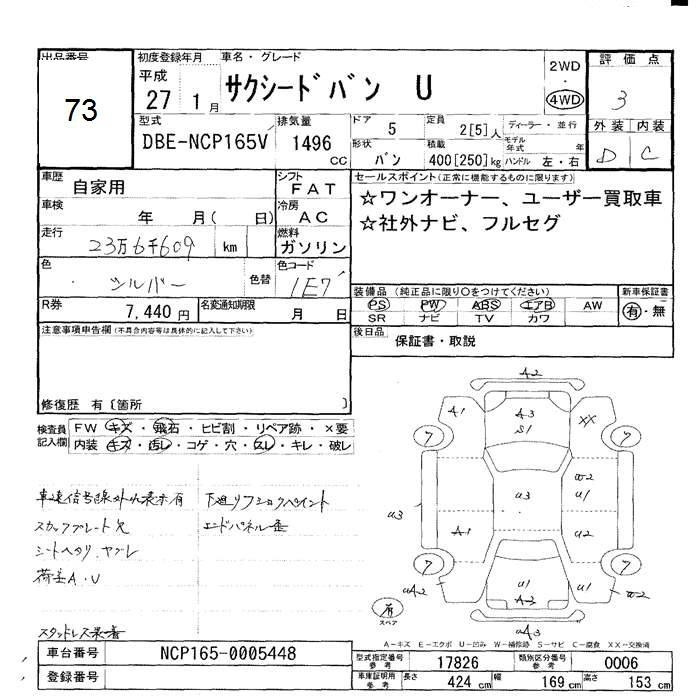 出品番号
73
初度登録年月
平成
27 1月
車名・グレード
サクシードバン U
2WD
・
4WD
評価点
3
外装 内装
D C
型式
DBE-NCP165V
排気量
1496
cc
ドア
5
定員
2[5]人
ディーラー・並行
形状
バン
積載
400[250]kg
モデル年式 年
ハンドル 左・右
車歴
自家用
シフト
FAT
車検
年 月( 日)
冷房
AC
走行
23万6千609 km
燃料
ガソリン
色
シルバー
色替
色コード
1E7
R券
7,440円
名変通知期限
月 日
セールスポイント(正常に機能するものに限ります)
☆ワンオーナー、ユーザー買取車
☆社外ナビ、フルセグ
装備品(純正品に限り○をつけてください)
PS PW ABS エアB AW
SR ナビ TV カワ
新車保証書
有・無
後日品
保証書・取説
注意事項申告欄(不具合内容等は具体的に記入して下さい)
修復歴 有〔箇所 〕
検査員記入欄
FW キズ・飛石・ヒビ割・リペア跡・×要
内装 キズ・汚レ・コゲ・穴・スレ・キレ・破レ
車速信号線外レ表示有
スカッフプレート欠
シートヘタリ・ヤブレ
荷室A・U
スタッドレス装着
下廻リフショックペイント
エンドパネル歪
A2
A1
A3
S1
XX
7
7
W2
U1
U3
U3
A1
U2
7
7
UA2
U1
A3
U1
W2
UA3
有
スペア
A−キズ E−エクボ U−凹み W−補修跡 S−サビ C−腐食 XX−交換済
車台番号
NCP165-0005448
登録番号
型式指定番号
参考
17826
類別区分番号
参考
0006
車庫証明用
参考
長さ 424 cm 幅 169 cm 高さ 153 cm